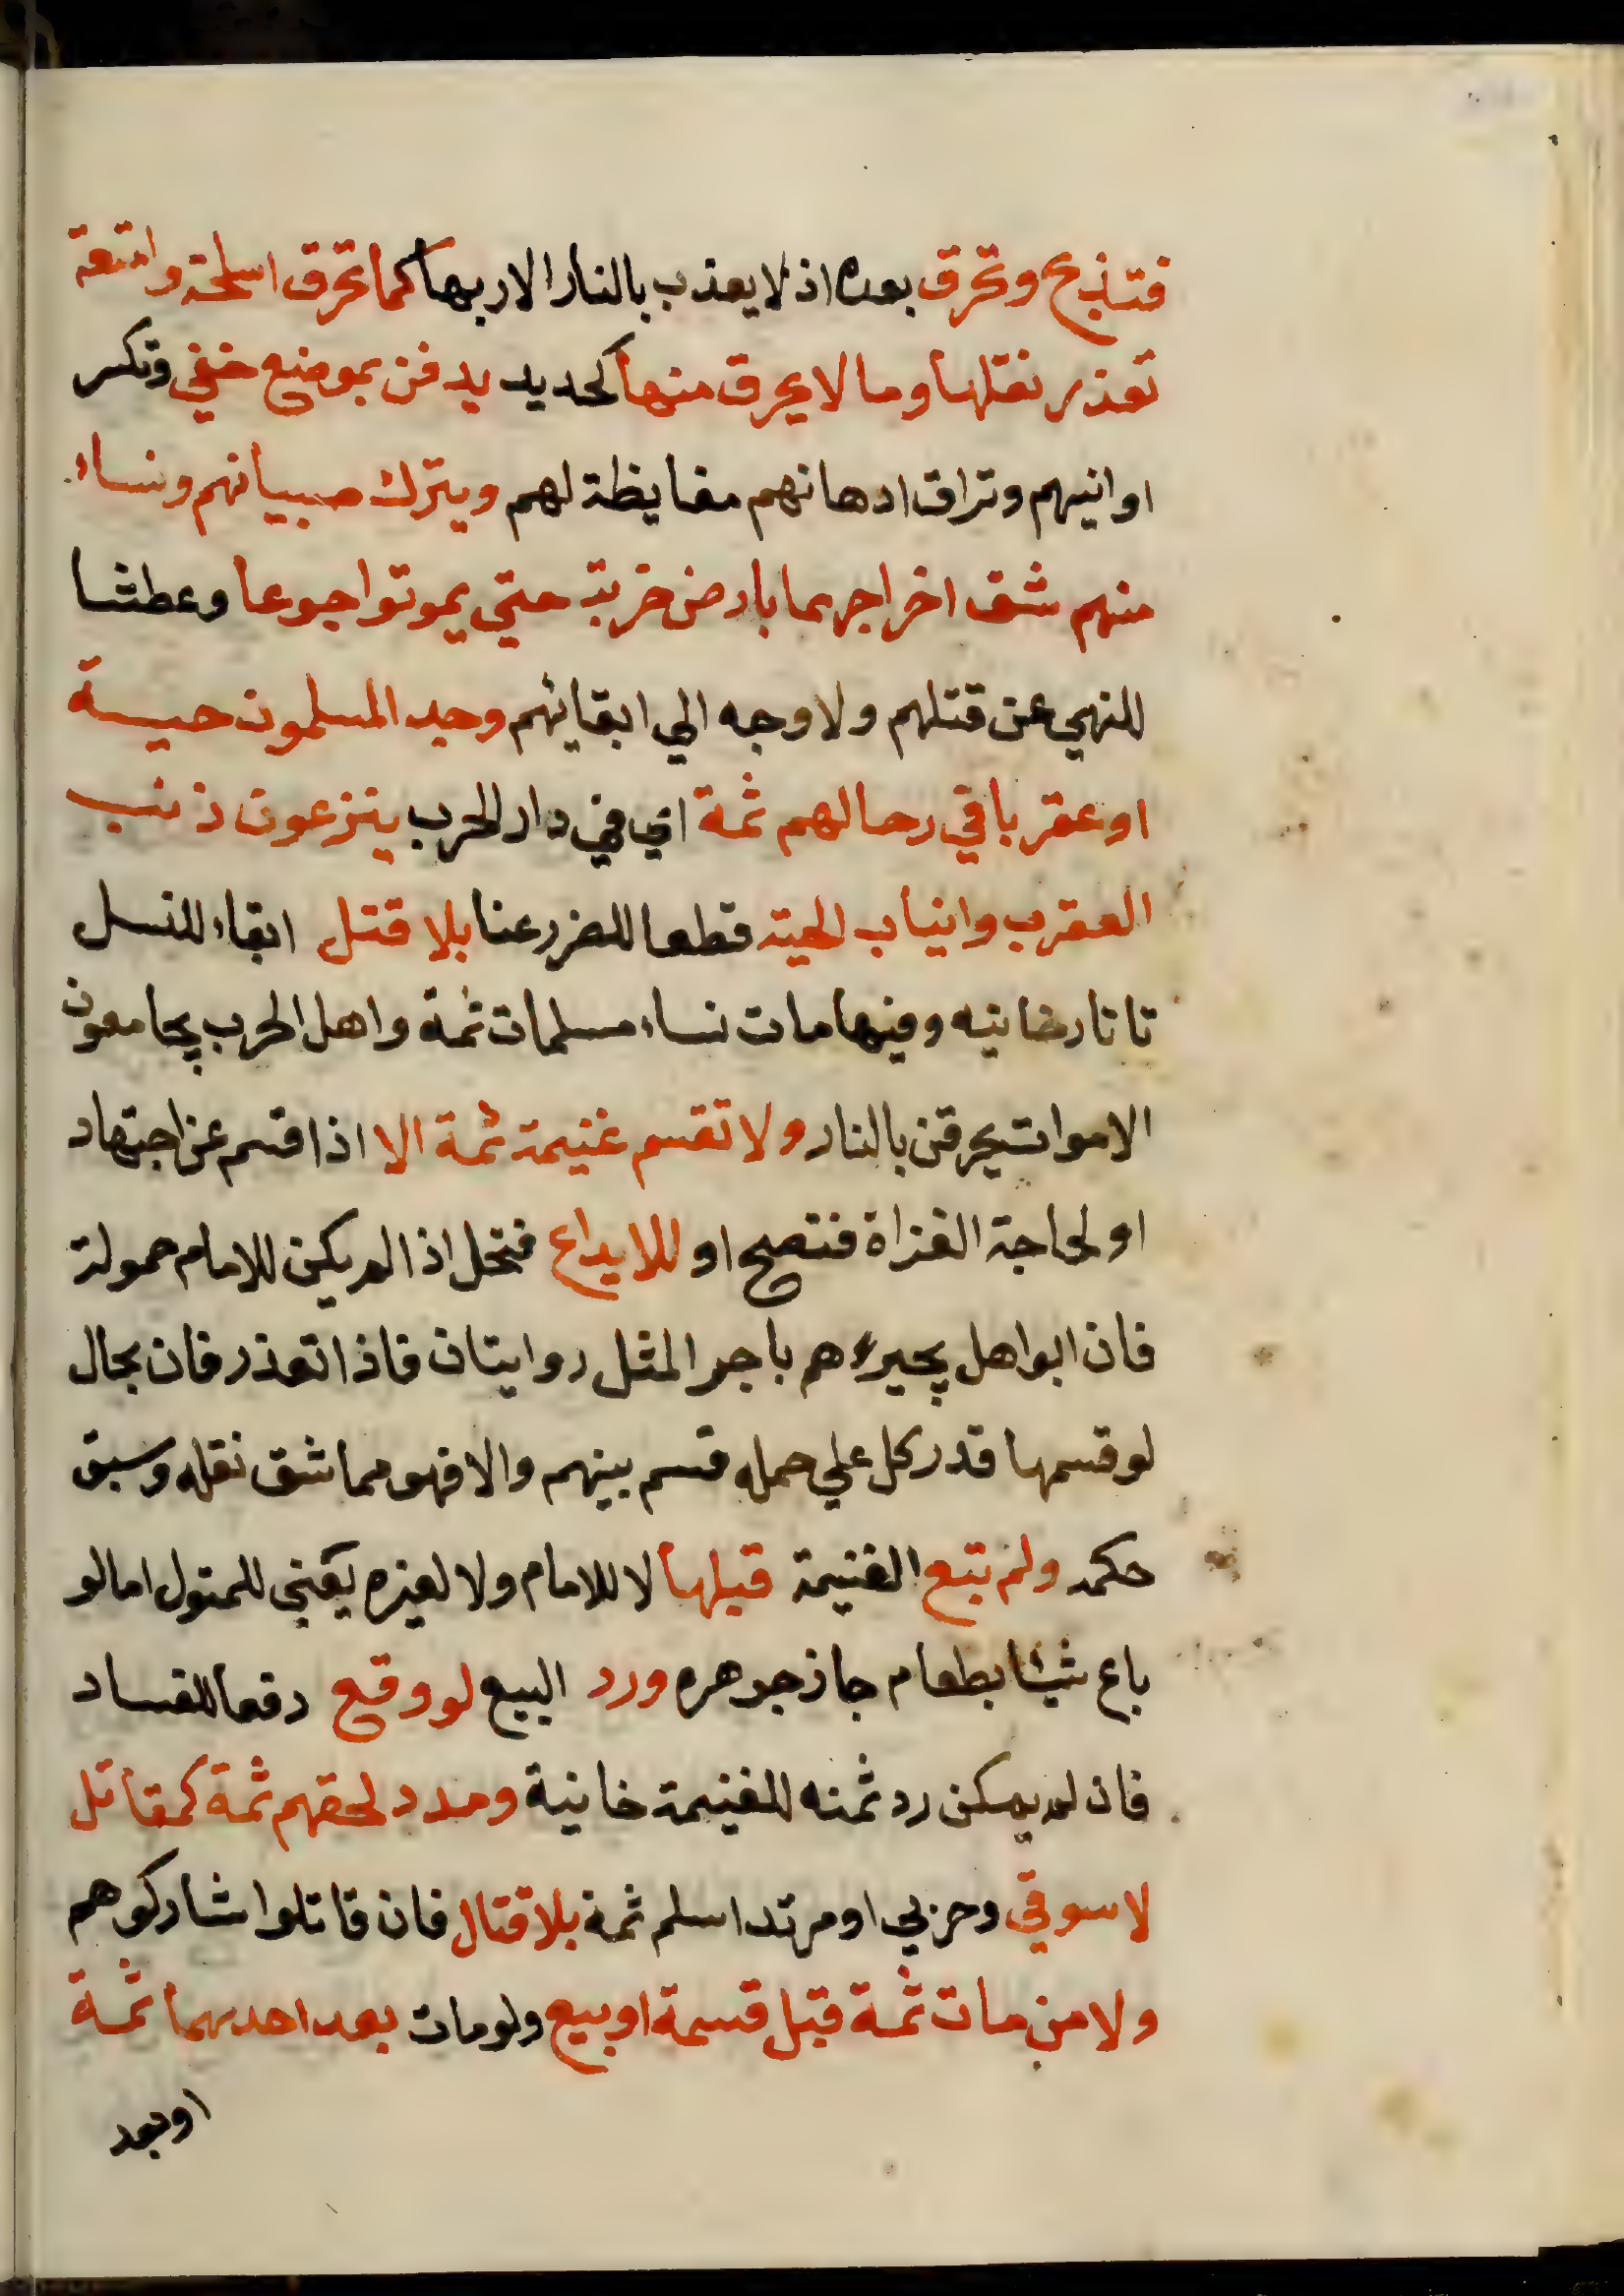 فتذبح وتحرق بعده اذ لا يعذب بالنار الا ربها كما تحرق اسلحة وامتعة
تعذر نقلها وما لا يحرق منها كحديد يدفن بموضع خفي وتكسر
اوانيهم وتراق ادهانهم مغايظة لهم ويترك صبيانهم ونساء
منهم شق اخراجهما بارض خربة حتي يموتوا جوعا وعطشا
للنهي عن قتلهم ولا وجه الي ابقايهم وجد المسلمون حية
او عقربا في رحالهم ثمة اي في دار الحرب ينزعون ذنب
العقرب وانياب الحية قطعا للضرر عنا بلا قتل ابقاء للنسل
تاتارخانيه وفيها مات نساء مسلمات ثمة واهل الحرب يجامعون
الاموات يحرقن بالنار ولا تقسم غنيمة ثمة الا اذا قسم عن اجتهاد
او لحاجة الغزاة فتصح او للايداع فتحل اذا لم يكن للامام حمولة
فان ابوا هل يجبرهم باجر المثل روايتان فاذا تعذر فان بحال
لو قسمها قدر كل علي حمله قسم بينهم والا فهو مما شق نقله وسبق
حكمه ولم تبع الغنيمة قبلها لا للامام ولا لغيره يعني للمتول اما لو
باع شيئا بطعام جاز جوهره ورد البيع لو وقع دفعا للفساد
فان لم يمكن رد ثمنه للغنيمة خانية ومدد لحقهم ثمة كمقاتل
لا سوقي وحربي او مرتد اسلم ثمة بلا قتال فان قاتلوا شاركوهم
ولا من مات ثمة قبل قسمة او بيع ولو مات بعد احدهما ثمة
او بعد